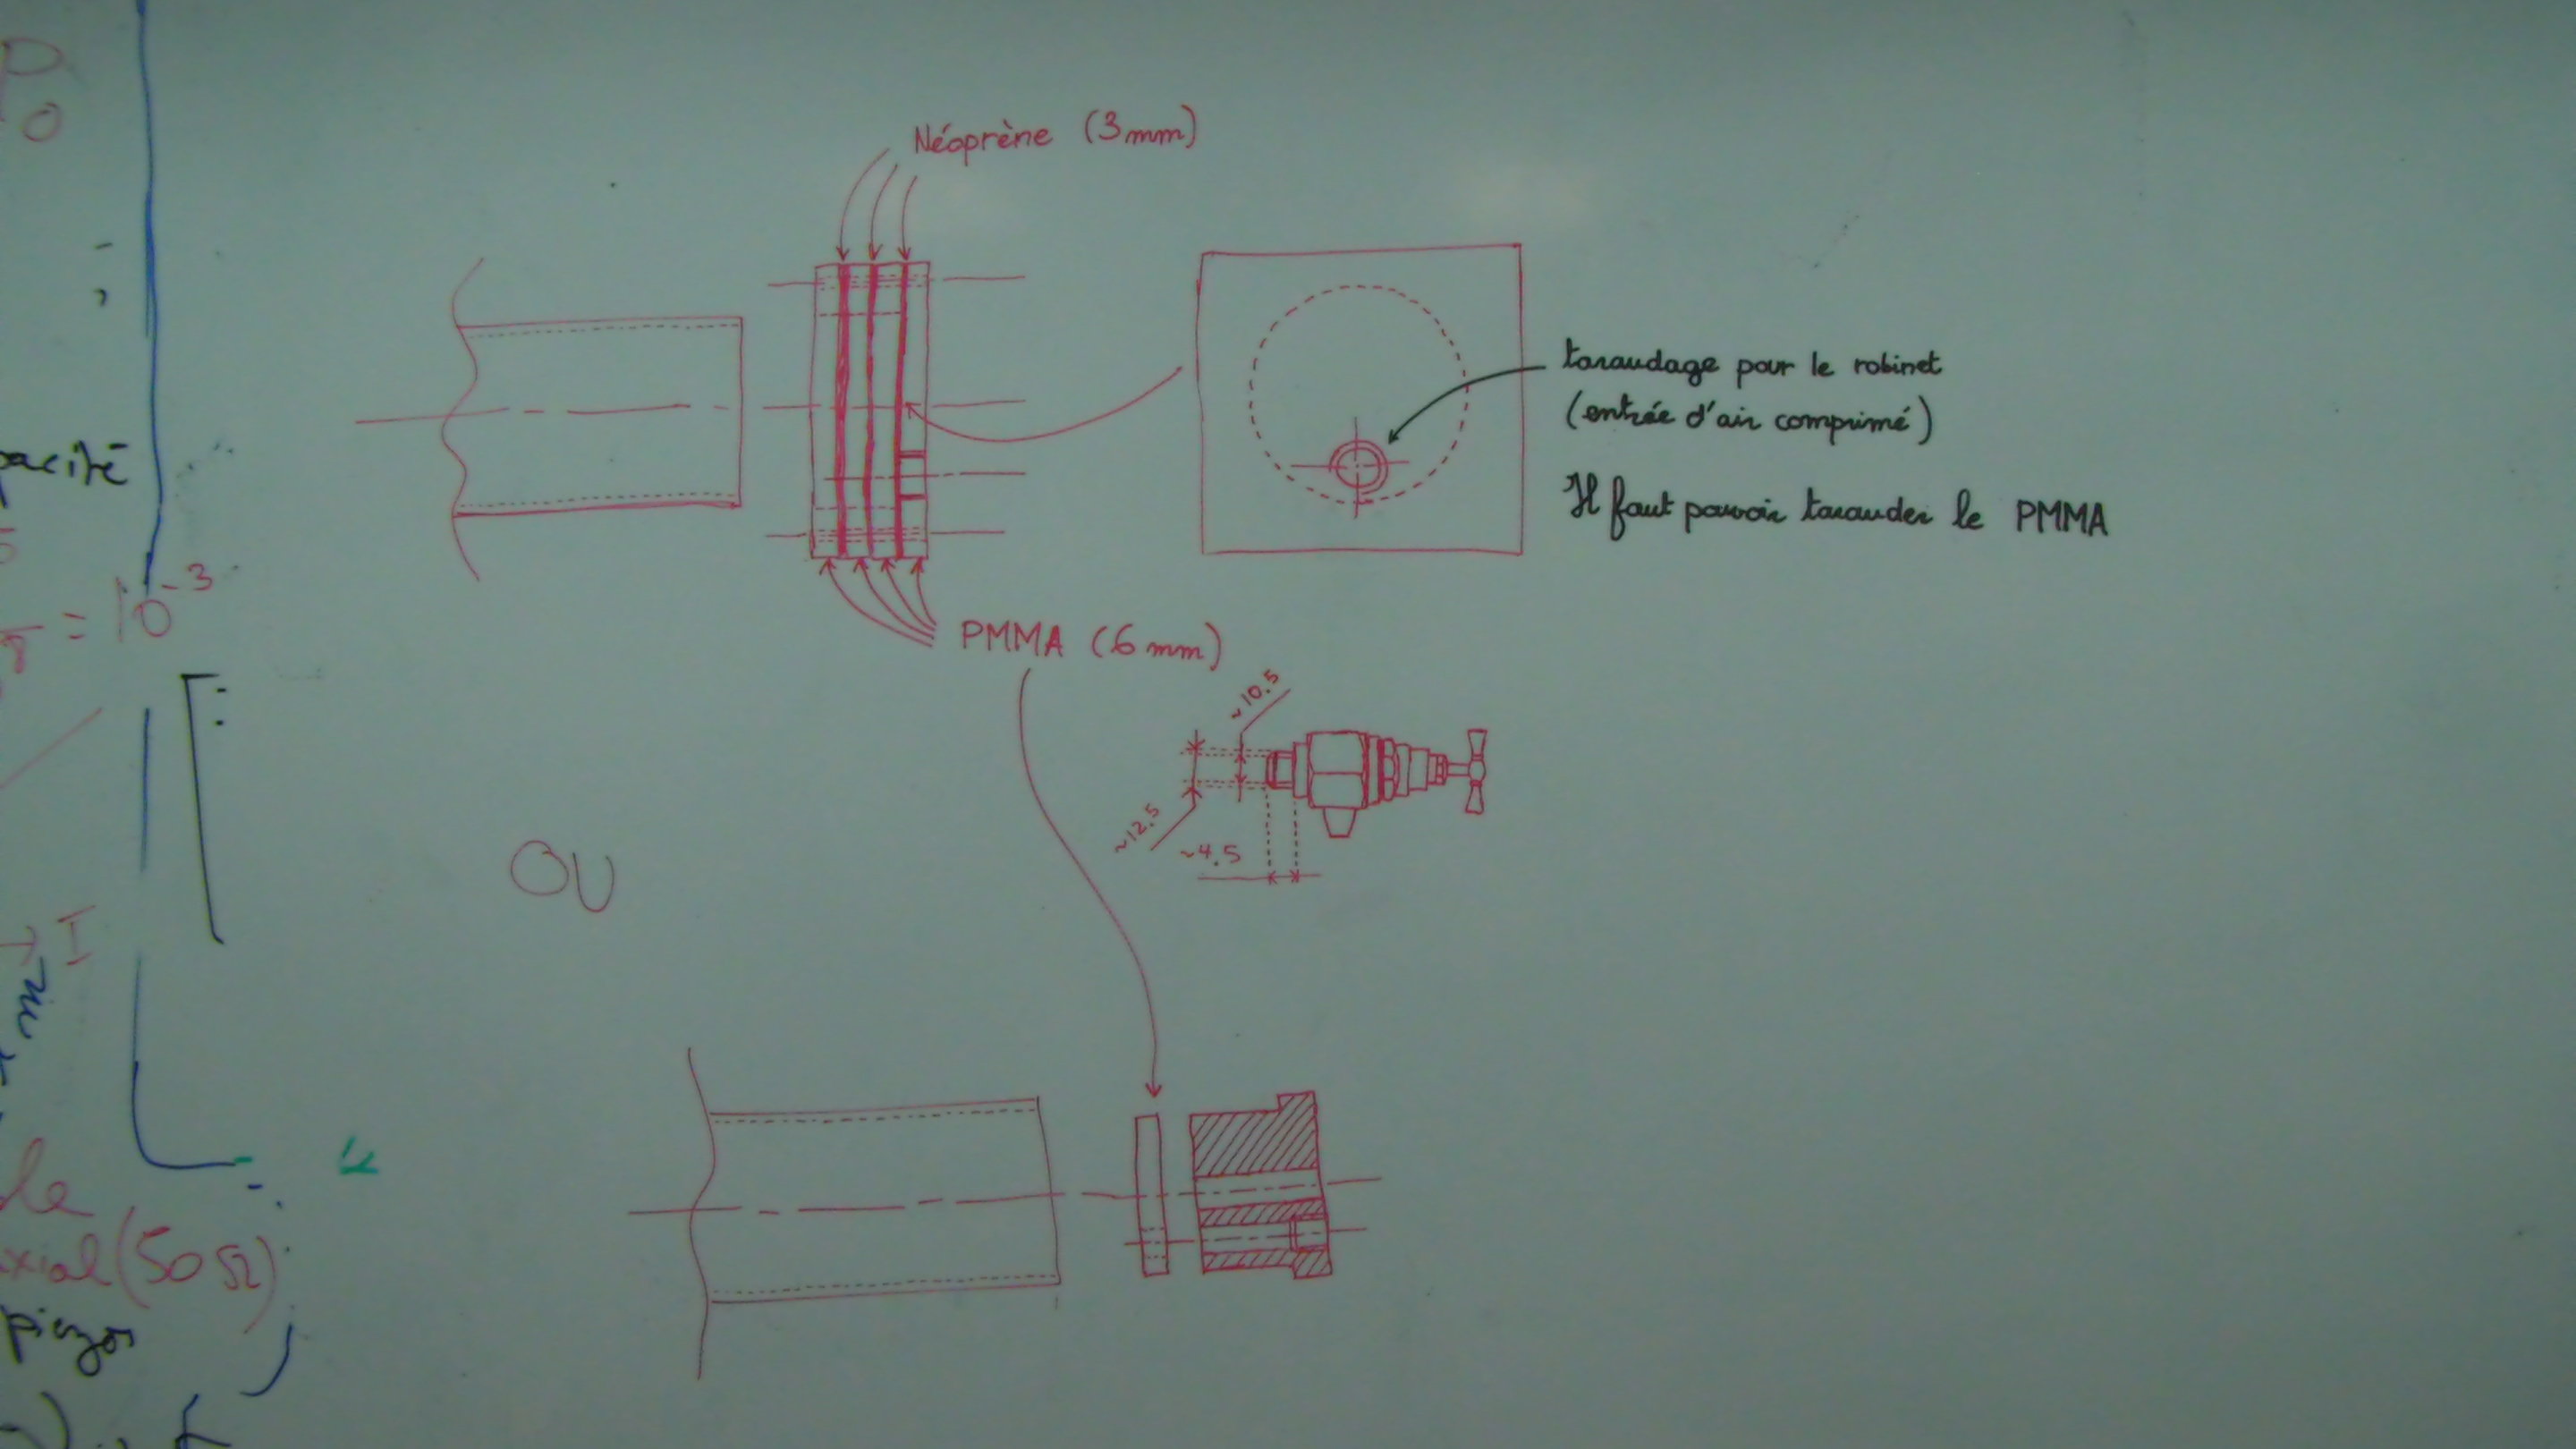 Néoprène (3mm)
taraudage pour le robinet
(entrée d'air comprimé)
Il faut pouvoir tarauder le PMMA
PMMA (6mm)
~10.5
~12.5
~4.5
OU
P
0
pacité
= 10^-3
→ I
le
xial (50Ω)
piezos